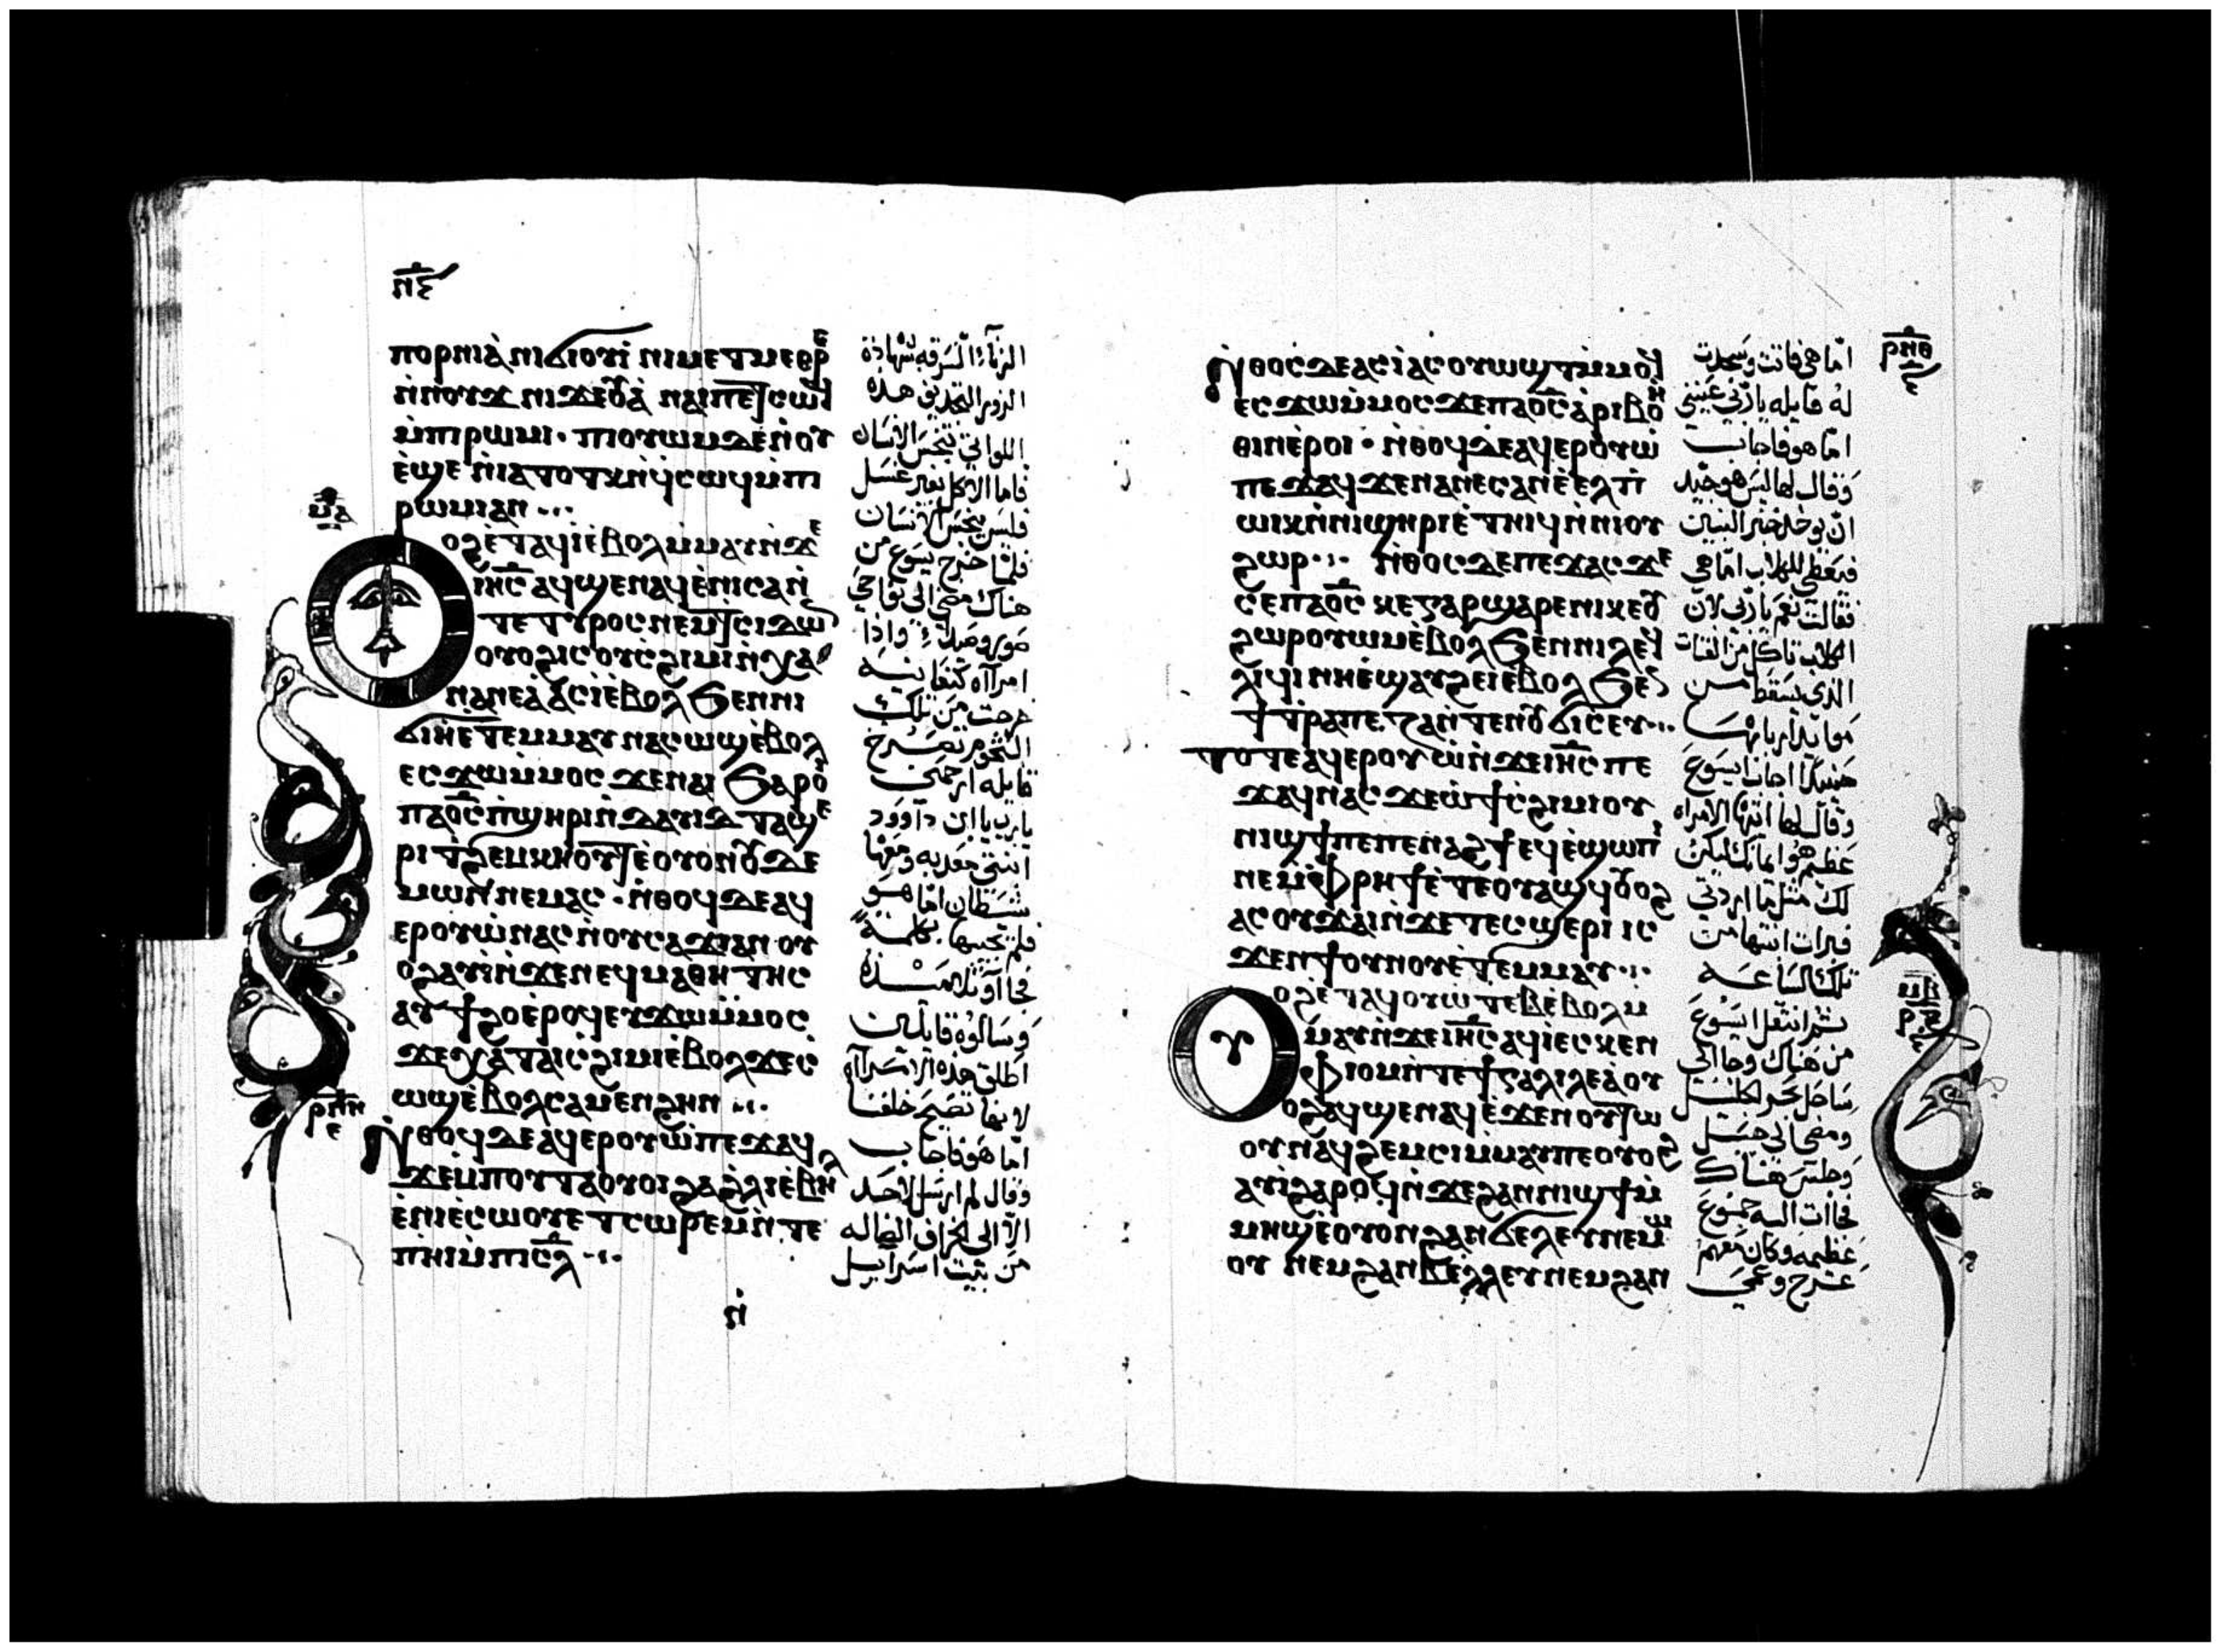 ⲛⲋ
ⲡⲟⲣⲛⲓⲁ̀ ⲛⲓϭⲓⲟⲩⲓ̀ ⲛⲓⲙⲉⲧⲙⲉⲑⲣⲉ
ⲛ̀ⲛⲟⲩϫ ⲛⲓϫⲉⲟⲩⲁ̀ ⲛⲁⲓⲡⲉⲧⲥⲱϥ
ⲙ̀ⲡⲓⲣⲱⲙⲓ · ⲡⲓⲟⲩⲱⲙ ⲇⲉ ⲛ̀ⲟⲩ
ⲉ̀ϣⲉ ⲛ̀ⲓⲁ ⲧⲟⲧⲕ ⲛ̀ϥⲥⲱϥ ⲙ̀ⲡⲓ
ⲣⲱⲙⲓ ⲁⲛ
ⲙⲁ
ⲟⲩⲟϩ ⲉ̀ⲧⲁϥⲓ̀ ⲉ̀ⲃⲟⲗ ⲙ̀ⲙⲁⲩ ⲛ̀ϫⲉ
ⲓⲏⲥ ⲁϥϣⲉⲛⲁϥ ⲉ̀ⲛⲓⲥⲁ ⲛ̀
ⲧⲉ ⲧⲩⲣⲟⲥ ⲛⲉⲙ ⲧⲥⲓⲇⲱⲛ
ⲟⲩⲟϩ ⲓⲥ ⲟⲩⲥϩⲓⲙⲓ ⲛ̀ⲭⲁ
ⲛⲁⲛⲉⲁ ⲁⲥⲓ̀ ⲉ̀ⲃⲟⲗ ϧⲉⲛ ⲛⲓ
ϭⲓⲏ ⲉ̀ⲧⲉⲙⲙⲁⲩ ⲛⲁⲥⲱϣ ⲉ̀ⲃⲟⲗ
ⲉⲥϫⲱ ⲙ̀ⲙⲟⲥ ϫⲉ ⲛⲁⲓ ϧⲁⲣⲟⲓ
ⲡⲁⲟ̅ⲥ̅ ⲡ̀ϣⲏⲣⲓ ⲛ̀ⲇⲁⲩⲓⲇ ⲧⲁϣⲉ
ⲣⲓ ⲧϩⲉⲙⲕⲏⲟⲩⲧ ⲉ̀ⲟⲩⲟⲛ ⲟⲩⲇⲉ
ⲙⲱⲛ ⲛⲉⲙⲁⲥ · ⲛ̀ⲑⲟϥ ⲇⲉ ⲁϥ
ⲉⲣⲟⲩⲱ̀ ⲛⲁⲥ ⲛ̀ⲟⲩⲥⲁϫⲓ ⲁⲛ · ⲟⲩ
ⲟϩ ⲁⲩⲓ̀ ⲛ̀ϫⲉ ⲛⲉϥⲙⲁⲑⲏⲧⲏⲥ
ⲁⲩϯϩⲟ ⲉ̀ⲣⲟϥ ⲉⲩϫⲱ ⲙ̀ⲙⲟⲥ
ϫⲉ ⲭⲁ ⲧⲁⲓⲥϩⲓⲙⲓ ⲉ̀ⲃⲟⲗ ϫⲉ ⲥ
ⲱϣ ⲉ̀ⲃⲟⲗ ⲥⲁⲙⲉⲛϩⲏⲛ
ⲣⲛⲏ
ⲛ̀ⲑⲟϥ ⲇⲉ ⲁϥⲉⲣⲟⲩⲱ̀ ⲡⲉϫⲁϥ
ϫⲉ ⲙ̀ⲡⲟⲩⲧⲁⲟⲩⲟⲓ ϩⲁ ϩ̀ⲗⲓ ⲉ̀ⲃⲏⲗ
ⲉ̀ⲛⲓⲉ̀ⲥⲱⲟⲩ ⲉⲧⲥⲱⲣⲉⲙ ⲛ̀ⲧⲉ
ⲡⲏⲓ ⲙ̀ⲡⲓⲥⲗ
ⲛ̀
الزناء السرقه شهادة
الزور التجديف هذه
اللواتي تنجس الانسان
فاما الاكل بغير غسل
فليس ينجس الانسان
فلما خرج يسوع من
هناك مضى الى نواحي
صور وصيدا واذا
امراه كنعانيه
خرجت من تلك
التخوم تصرخ
قايله ارحمني
يارب يا ابن داوود
ابنتي معذبه ومعها
شيطان اما هو
فلم يجبها بكلمه
فجاآ تلاميذه
وسالوه قايلين
اطلق هذه الامراه
لانها تصيح خلفنا
اما هو فاجاب
وقال لم ارسل لاحد
الا الى الخراف الضاله
من بيت اسراييل
ⲣⲛⲑ
ⲛ̀ⲑⲟⲥ ⲇⲉ ⲁⲥⲓ̀ ⲁⲥⲟⲩⲱϣⲧ ⲙ̀ⲙⲟϥ
ⲉⲥϫⲱ ⲙ̀ⲙⲟⲥ ϫⲉ ⲡⲁⲟ̅ⲥ̅ ⲁ̀ⲣⲓⲃⲟⲏ̀
ⲑⲓⲛ ⲉ̀ⲣⲟⲓ · ⲛ̀ⲑⲟϥ ⲇⲉ ⲁϥⲉⲣⲟⲩⲱ̀
ⲡⲉϫⲁϥ ϫⲉ ⲛⲁⲛⲉⲥ ⲁⲛ ⲉ̀ⲉⲗ ⲡⲓ
ⲱⲓⲕ ⲛ̀ⲛⲓϣⲏⲣⲓ ⲉ̀ⲧⲏⲓϥ ⲛ̀ⲛⲓⲟⲩ
ϩⲱⲣ ⲛ̀ⲑⲟⲥ ⲇⲉ ⲡⲉϫⲁⲥ ϫⲉ
ⲥⲉ ⲡⲁⲟ̅ⲥ̅ ⲕⲉ ⲅⲁⲣ ϣⲁⲣⲉ ⲛⲓⲕⲉⲟⲩ
ϩⲱⲣ ⲟⲩⲱⲙ ⲉ̀ⲃⲟⲗ ϧⲉⲛ ⲛⲓⲗⲉϥ
ⲗⲓϥⲓ ⲛⲏ ⲉ̀ϣⲁⲩϩⲉⲓ ⲉ̀ⲃⲟⲗ ϧⲉⲛ
ϯⲧ̀ⲣⲁⲡⲉⲍⲁ ⲛ̀ⲧⲉ ⲛⲟⲩϭⲓⲥⲉⲩ
ⲧⲟⲧⲉ ⲁϥⲉⲣⲟⲩⲱ̀ ⲛ̀ϫⲉ ⲓⲏⲥ ⲡⲉ
ϫⲁϥ ⲛⲁⲥ ϫⲉ ⲱ̀ ϯⲥϩⲓⲙⲓ ⲟⲩ
ⲛⲓϣϯ ⲡⲉ ⲡⲉⲛⲁϩϯ ⲉϥⲉ̀ϣⲱⲡⲓ
ⲛⲉ ⲙ̀ⲫⲣⲏϯ ⲉ̀ⲧⲉⲟⲩⲁϣϥ ⲟⲩⲟϩ
ⲁⲥⲟⲩϫⲁⲓ ⲛ̀ϫⲉ ⲧⲉⲥϣⲉⲣⲓ ⲓⲥ
ϫⲉⲛ ϯⲟⲩⲛⲟⲩ ⲉ̀ⲧⲉⲙⲙⲁⲩ
ⲙⲃ
ⲟⲩⲟϩ ⲉ̀ⲧⲁϥⲟⲩⲱⲧⲉⲃ ⲉ̀ⲃⲟⲗ ⲙ̀
ⲙⲁⲩ ⲛ̀ϫⲉ ⲓⲏⲥ ⲁϥⲓ̀ ⲉⲥⲕⲉⲛ
ⲫⲓⲟⲙ ⲛ̀ⲧⲉ ϯⲅⲁⲗⲓⲗⲉⲁ̀ ⲟⲩ
ⲟϩ ⲁϥϣⲉⲛⲁϥ ⲉ̀ϫⲉⲛ ⲟⲩⲧⲱ
ⲟⲩ ⲛⲁϥϩⲉⲙⲥⲓ ⲙ̀ⲙⲁⲩ ⲡⲉ ⲟⲩⲟϩ
ⲁⲩⲓ̀ ϩⲁⲣⲟϥ ⲛ̀ϫⲉ ϩⲁⲛⲛⲓϣϯ ⲙ̀
ⲙⲏϣ ⲉ̀ⲟⲩⲟⲛ ϩⲁⲛϭⲁⲗⲉⲩ ⲛⲉⲙⲱ
ⲟⲩ ⲛⲉⲙ ϩⲁⲛⲃⲉⲗⲗⲉⲩ ⲛⲉⲙ ϩⲁⲛ
اما هي فاتت وسجدت
له قايله يارب عيني
اما هو فاجاب
وقال لها ليس هو جيد
ان يوخذ خبز البنين
فيعطى للكلاب اما هي
فقالت نعم يارب لان
الكلاب تاكل من الفتات
الذي يسقط من
موايد اربابها
حينيذ اجاب يسوع
وقال لها ايتها الامراه
عظيم هو ايمانك ليكن
لك مثل ما اردتي
فبرات ابنتها من
تلك الساعه
ثم انتقل يسوع
من هناك وجا الى
ساحل بحر الجليل
ومضى الى جبل
وجلس هناك
فجاات اليه جموع
عظيمه وكان معهم
عرج وعمي